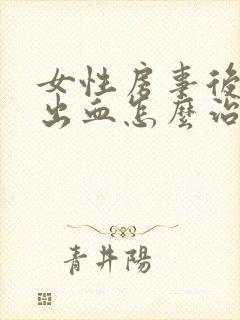 女性房事後
出血怎麼治
青井陽